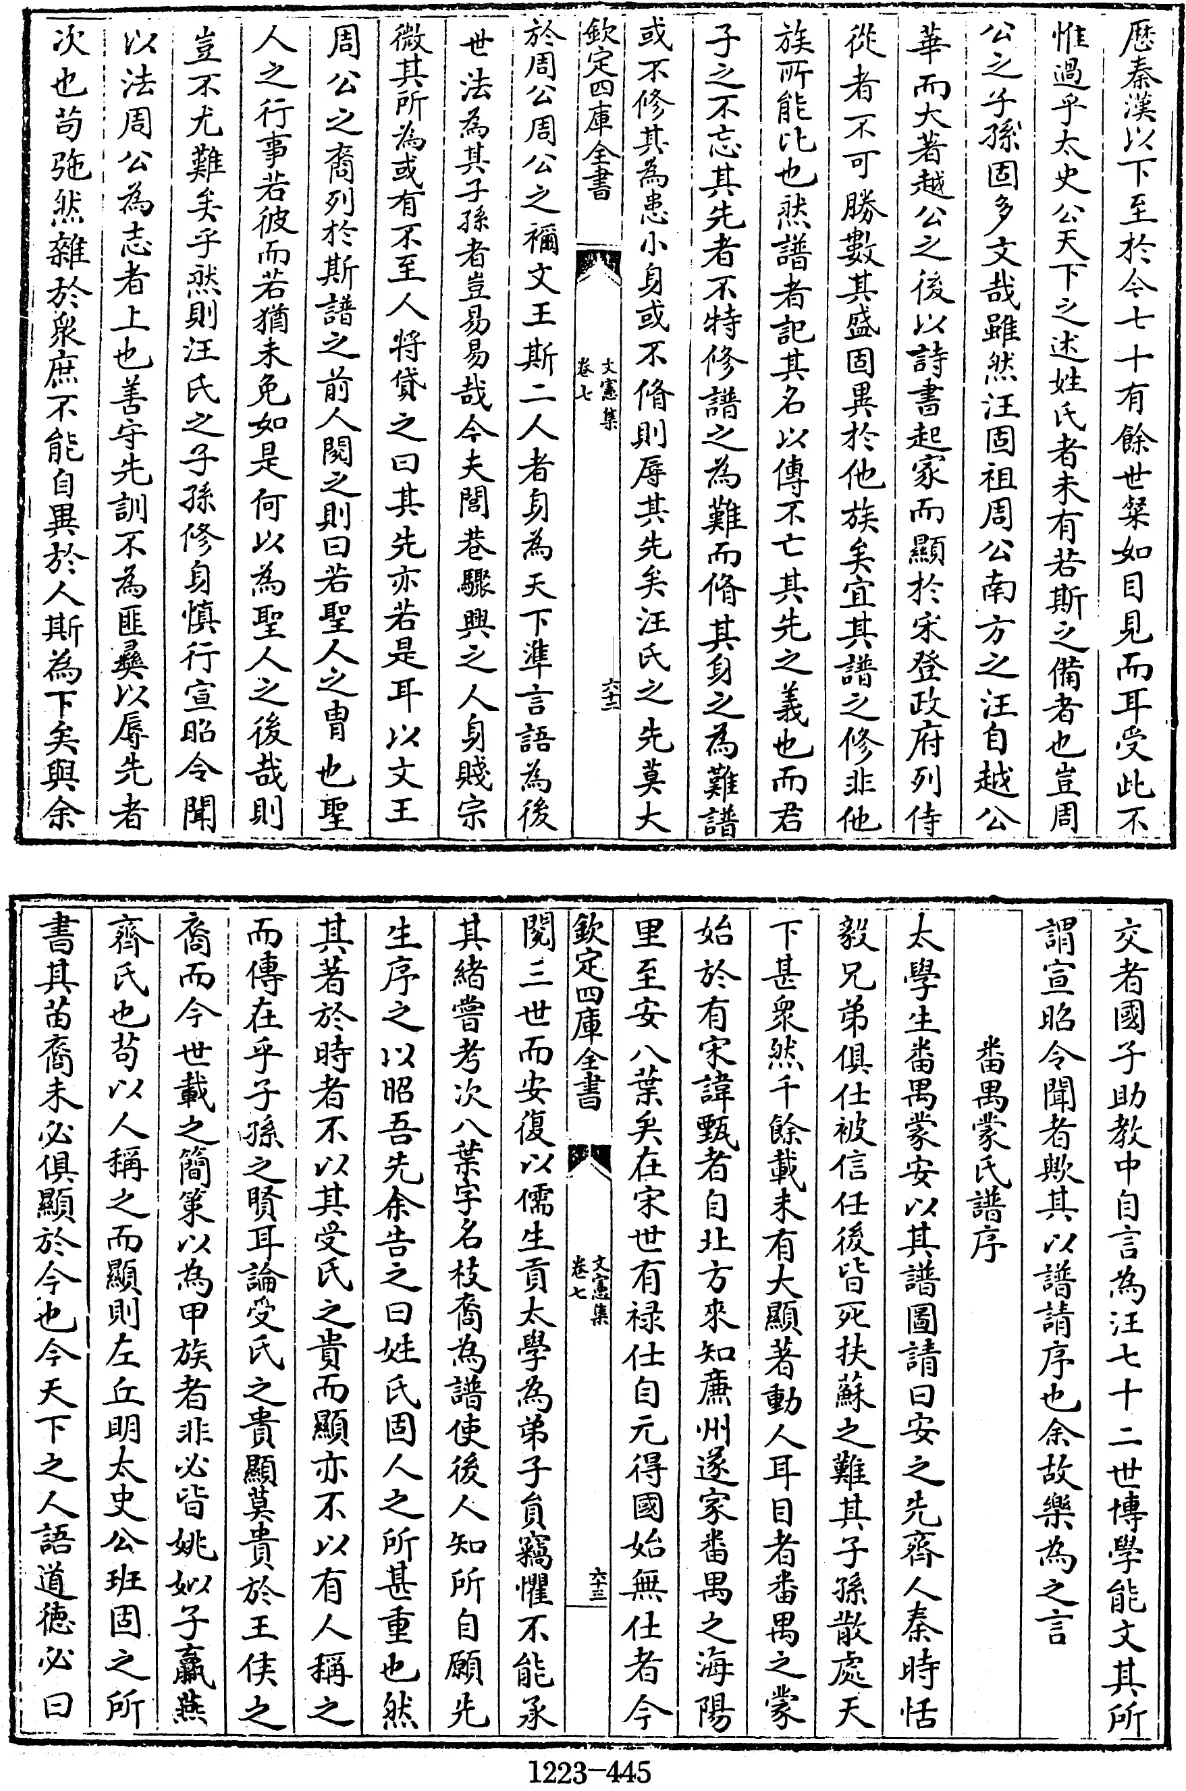 歴秦漢以下至於今七十有餘世粲如目見而耳受此不
惟過乎太史公天下之述姓氏者未有若斯之備者也豈周
公之子孫固多文哉雖然汪固祖周公南方之汪自越公
華而大著越公之後以詩書起家而顯於宋登政府列侍
從者不可勝數其盛固異於他族矣宜其譜之修非他
族所能比也然譜者記其名以傳不亡其先之義也而君
子之不忘其先者不特修譜之為難而脩其身之為難譜
或不修其為患小身或不脩則辱其先矣汪氏之先莫大
欽定四庫全書
文憲集
卷七
六十二
於周公周公之禰文王斯二人者身為天下準言語為後
世法為其子孫者豈易易哉今夫閭巷驟興之人身賤宗
微其所為或有不至人將貸之曰其先亦若是耳以文王
周公之裔列於斯譜之前人閱之則曰若聖人之冑也聖
人之行事若彼而若猶未免如是何以為聖人之後哉則
豈不尤難矣乎然則汪氏之子孫修身慎行宣昭令聞
以法周公為志者上也善守先訓不為匪彝以辱先者
次也苟弛然雜於衆庶不能自異於人斯為下矣與余
交者國子助教中自言為汪七十二世博學能文其所
謂宣昭令聞者歟其以譜請序也余故樂為之言
番禺蒙氏譜序
太學生番禺蒙安以其譜圖請曰安之先齊人秦時恬
毅兄弟俱仕被信任後皆死扶蘇之難其子孫散處天
下甚衆然千餘載未有大顯著動人耳目者番禺之蒙
始於有宋諱甄者自北方來知亷州遂家番禺之海陽
里至安八葉矣在宋世有禄仕自元得國始無仕者今
欽定四庫全書
文憲集
卷七
六十三
閱三世而安復以儒生貢太學為弟子員竊懼不能承
其緒嘗考次八葉字名枝裔為譜使後人知所自願先
生序之以昭吾先余告之曰姓氏固人之所甚重也然
其著於時者不以其受氏之貴而顯亦不以有人稱之
而傳在乎子孫之賢耳論受氏之貴顯莫貴於王侯之
裔而今世載之簡策以為甲族者非必皆姚姒子嬴燕
齊氏也苟以人稱之而顯則左丘明太史公班固之所
書其苗裔未必俱顯於今也今天下之人語道德必曰
1223-445